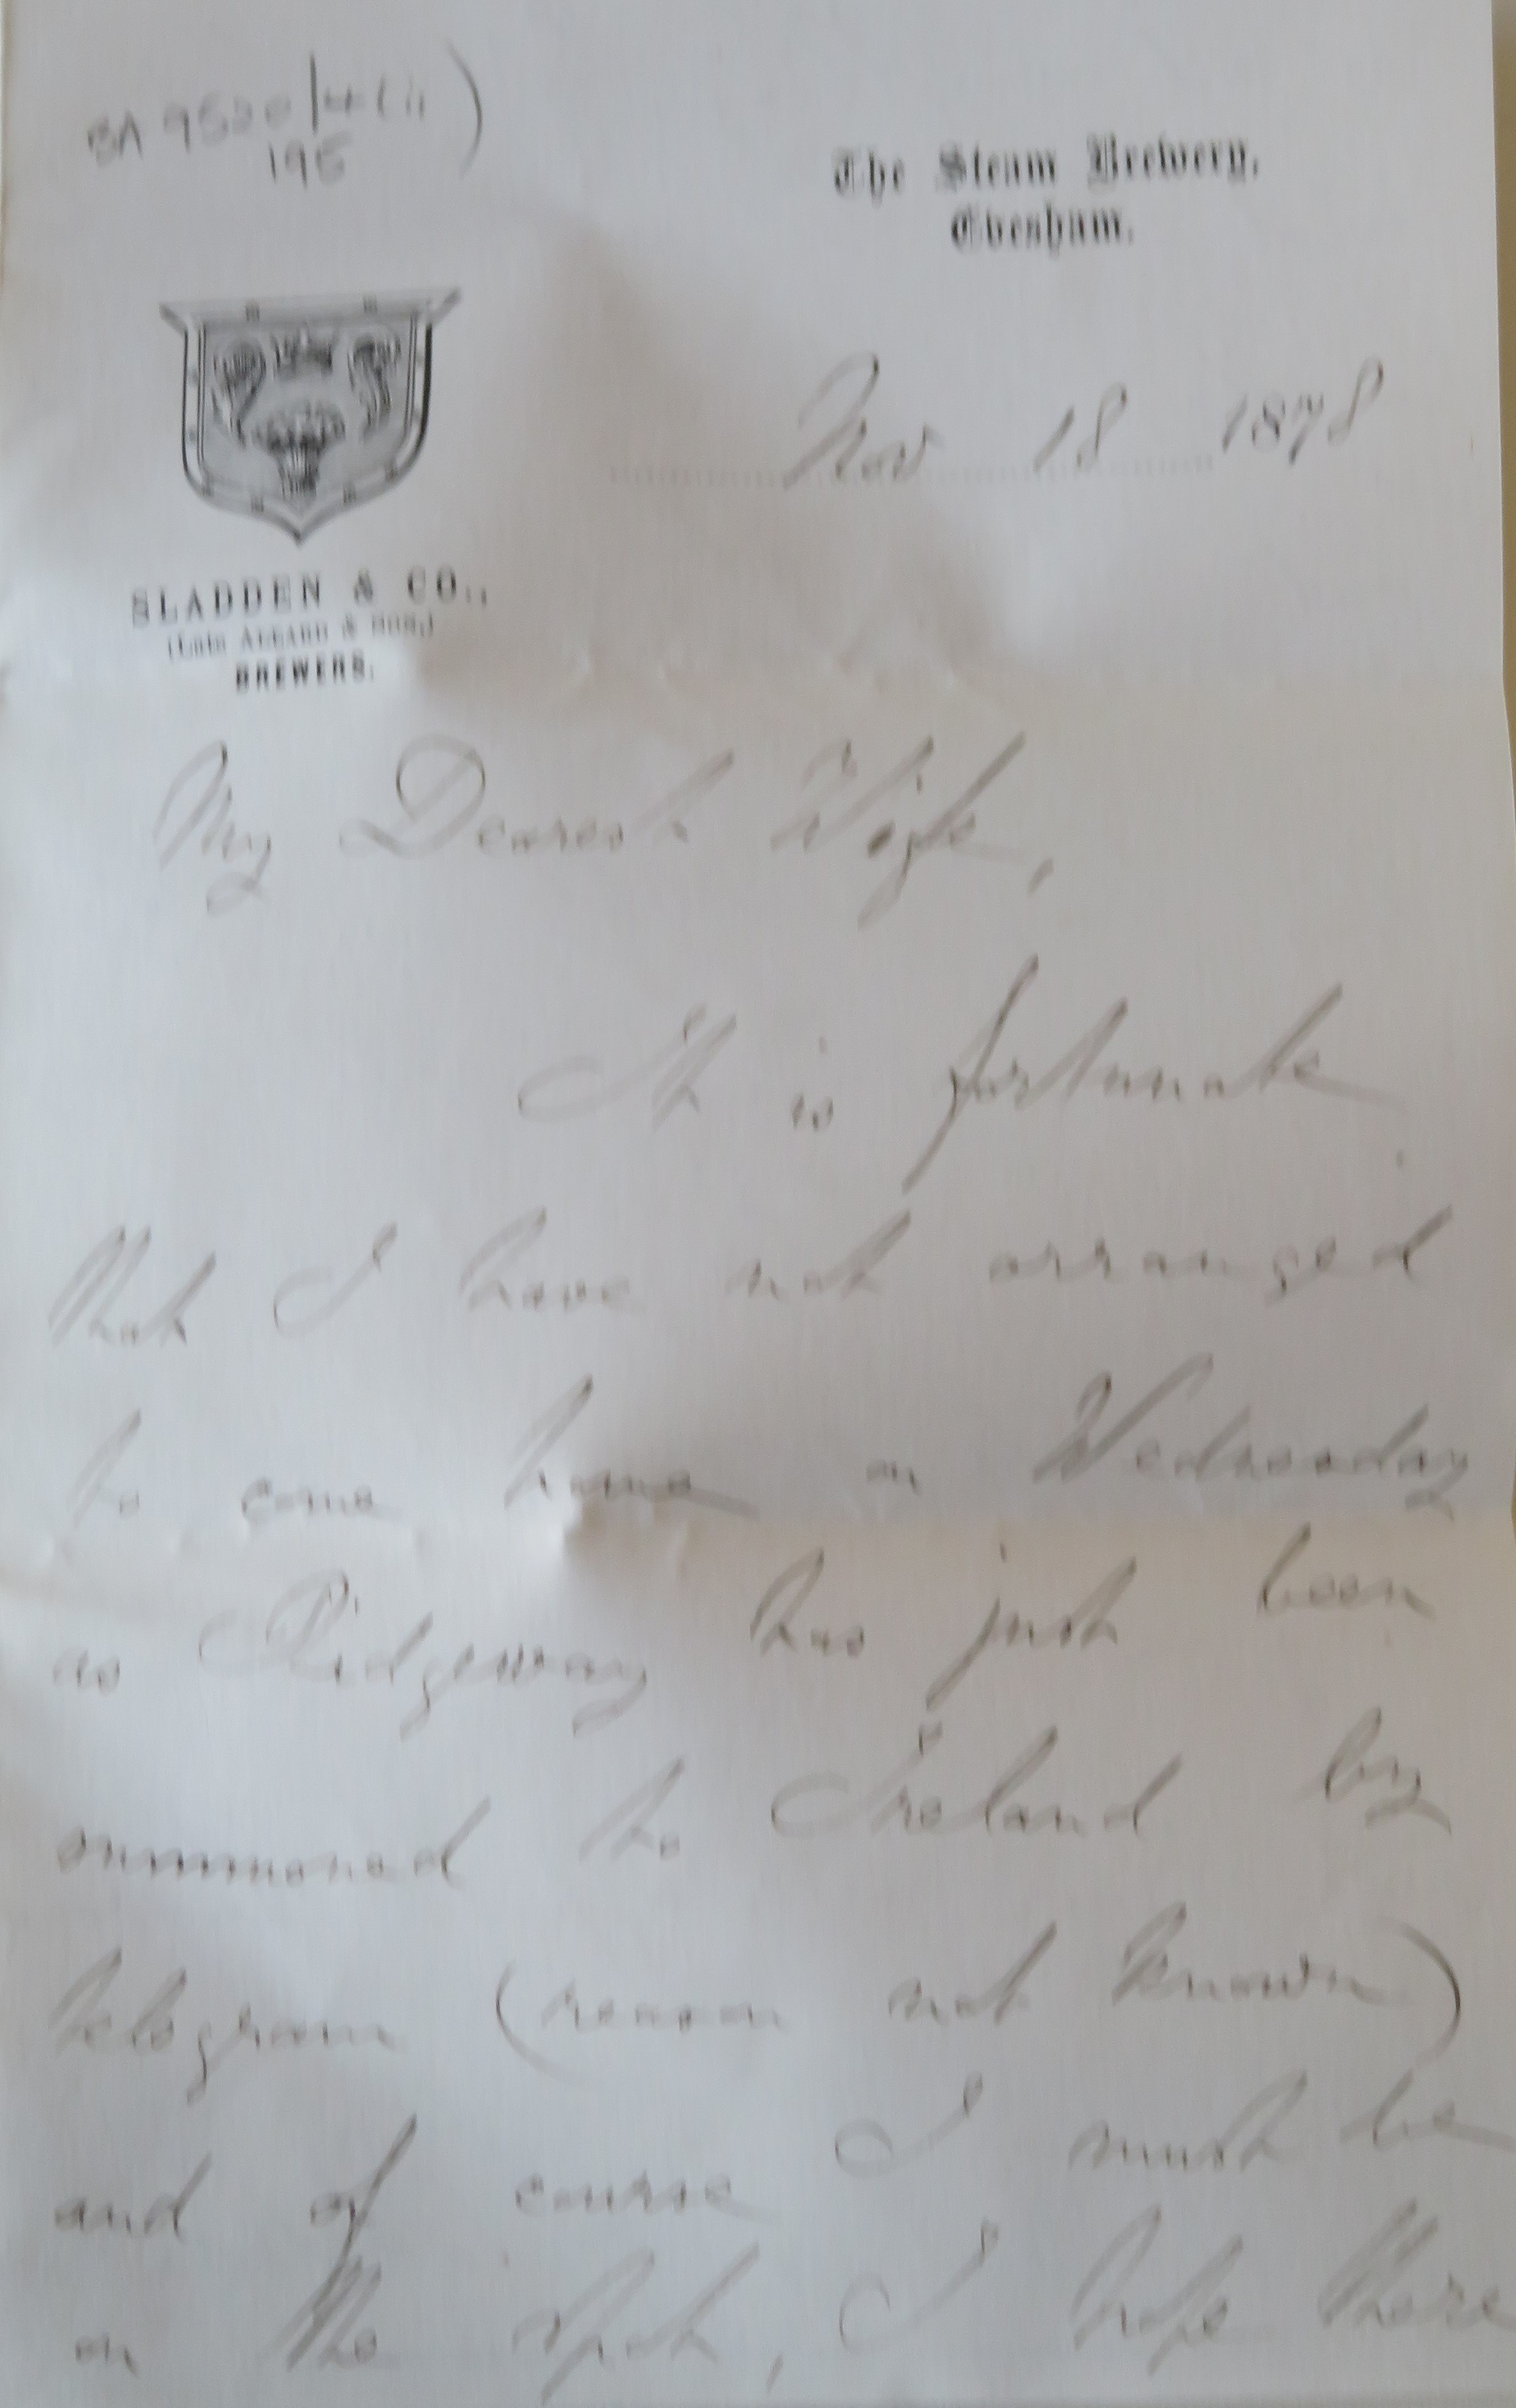 BA 9520/4(ii)
195
The Steam Brewery,
Evesham.
Nov 18 1878
SLADDEN & CO.,
(Late Allard & Son,)
BREWERS.
My Dearest Wife,
It is fortunate
that I have not arranged
to come home on Wednesday
as Ridgeway has just been
summoned to Ireland by
telegram (reason not known)
and of course I must be
on the spot, I hope there